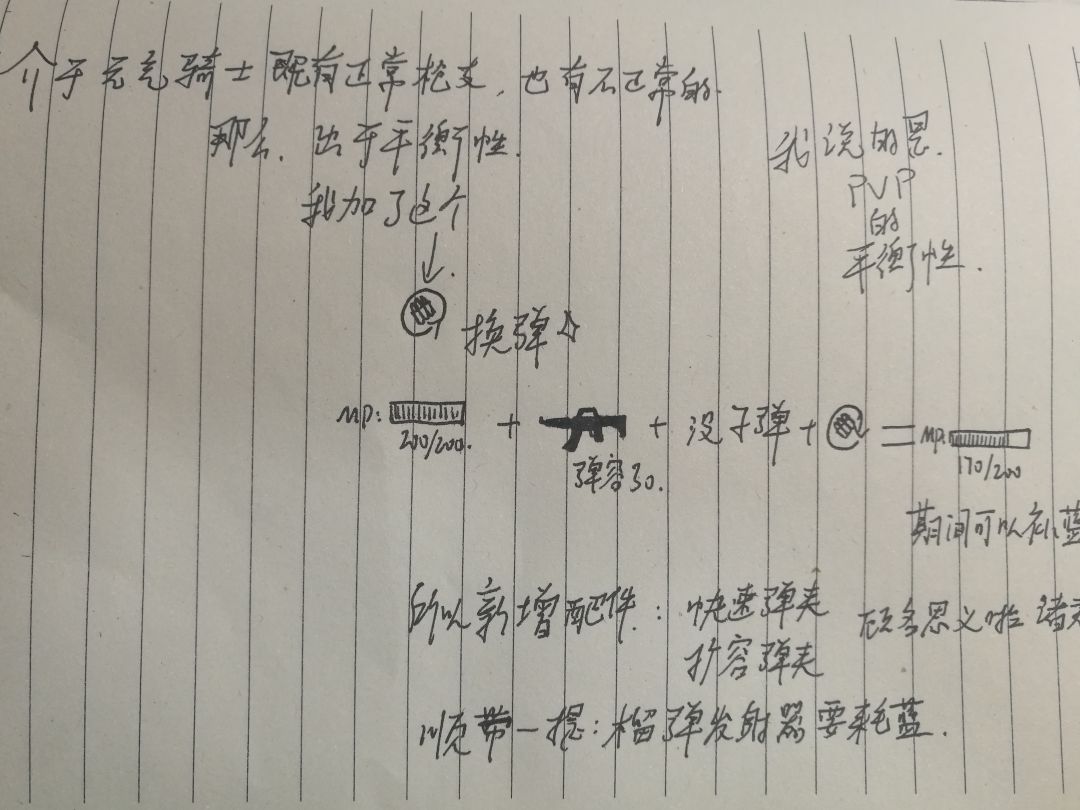 介于元气骑士既有正常枪支，也有不正常的.
那么，出于平衡性.
我加了这个
我说的是.
PVP
的
平衡性.
换弹
MP:
200/200.
+
弹容30.
+ 没子弹 +
=
MP:
170/200
期间可以补蓝
所以新增配件：快速弹夹
扩容弹夹
顾名思义啦 诸
顺带一提：榴弹发射器要耗蓝.